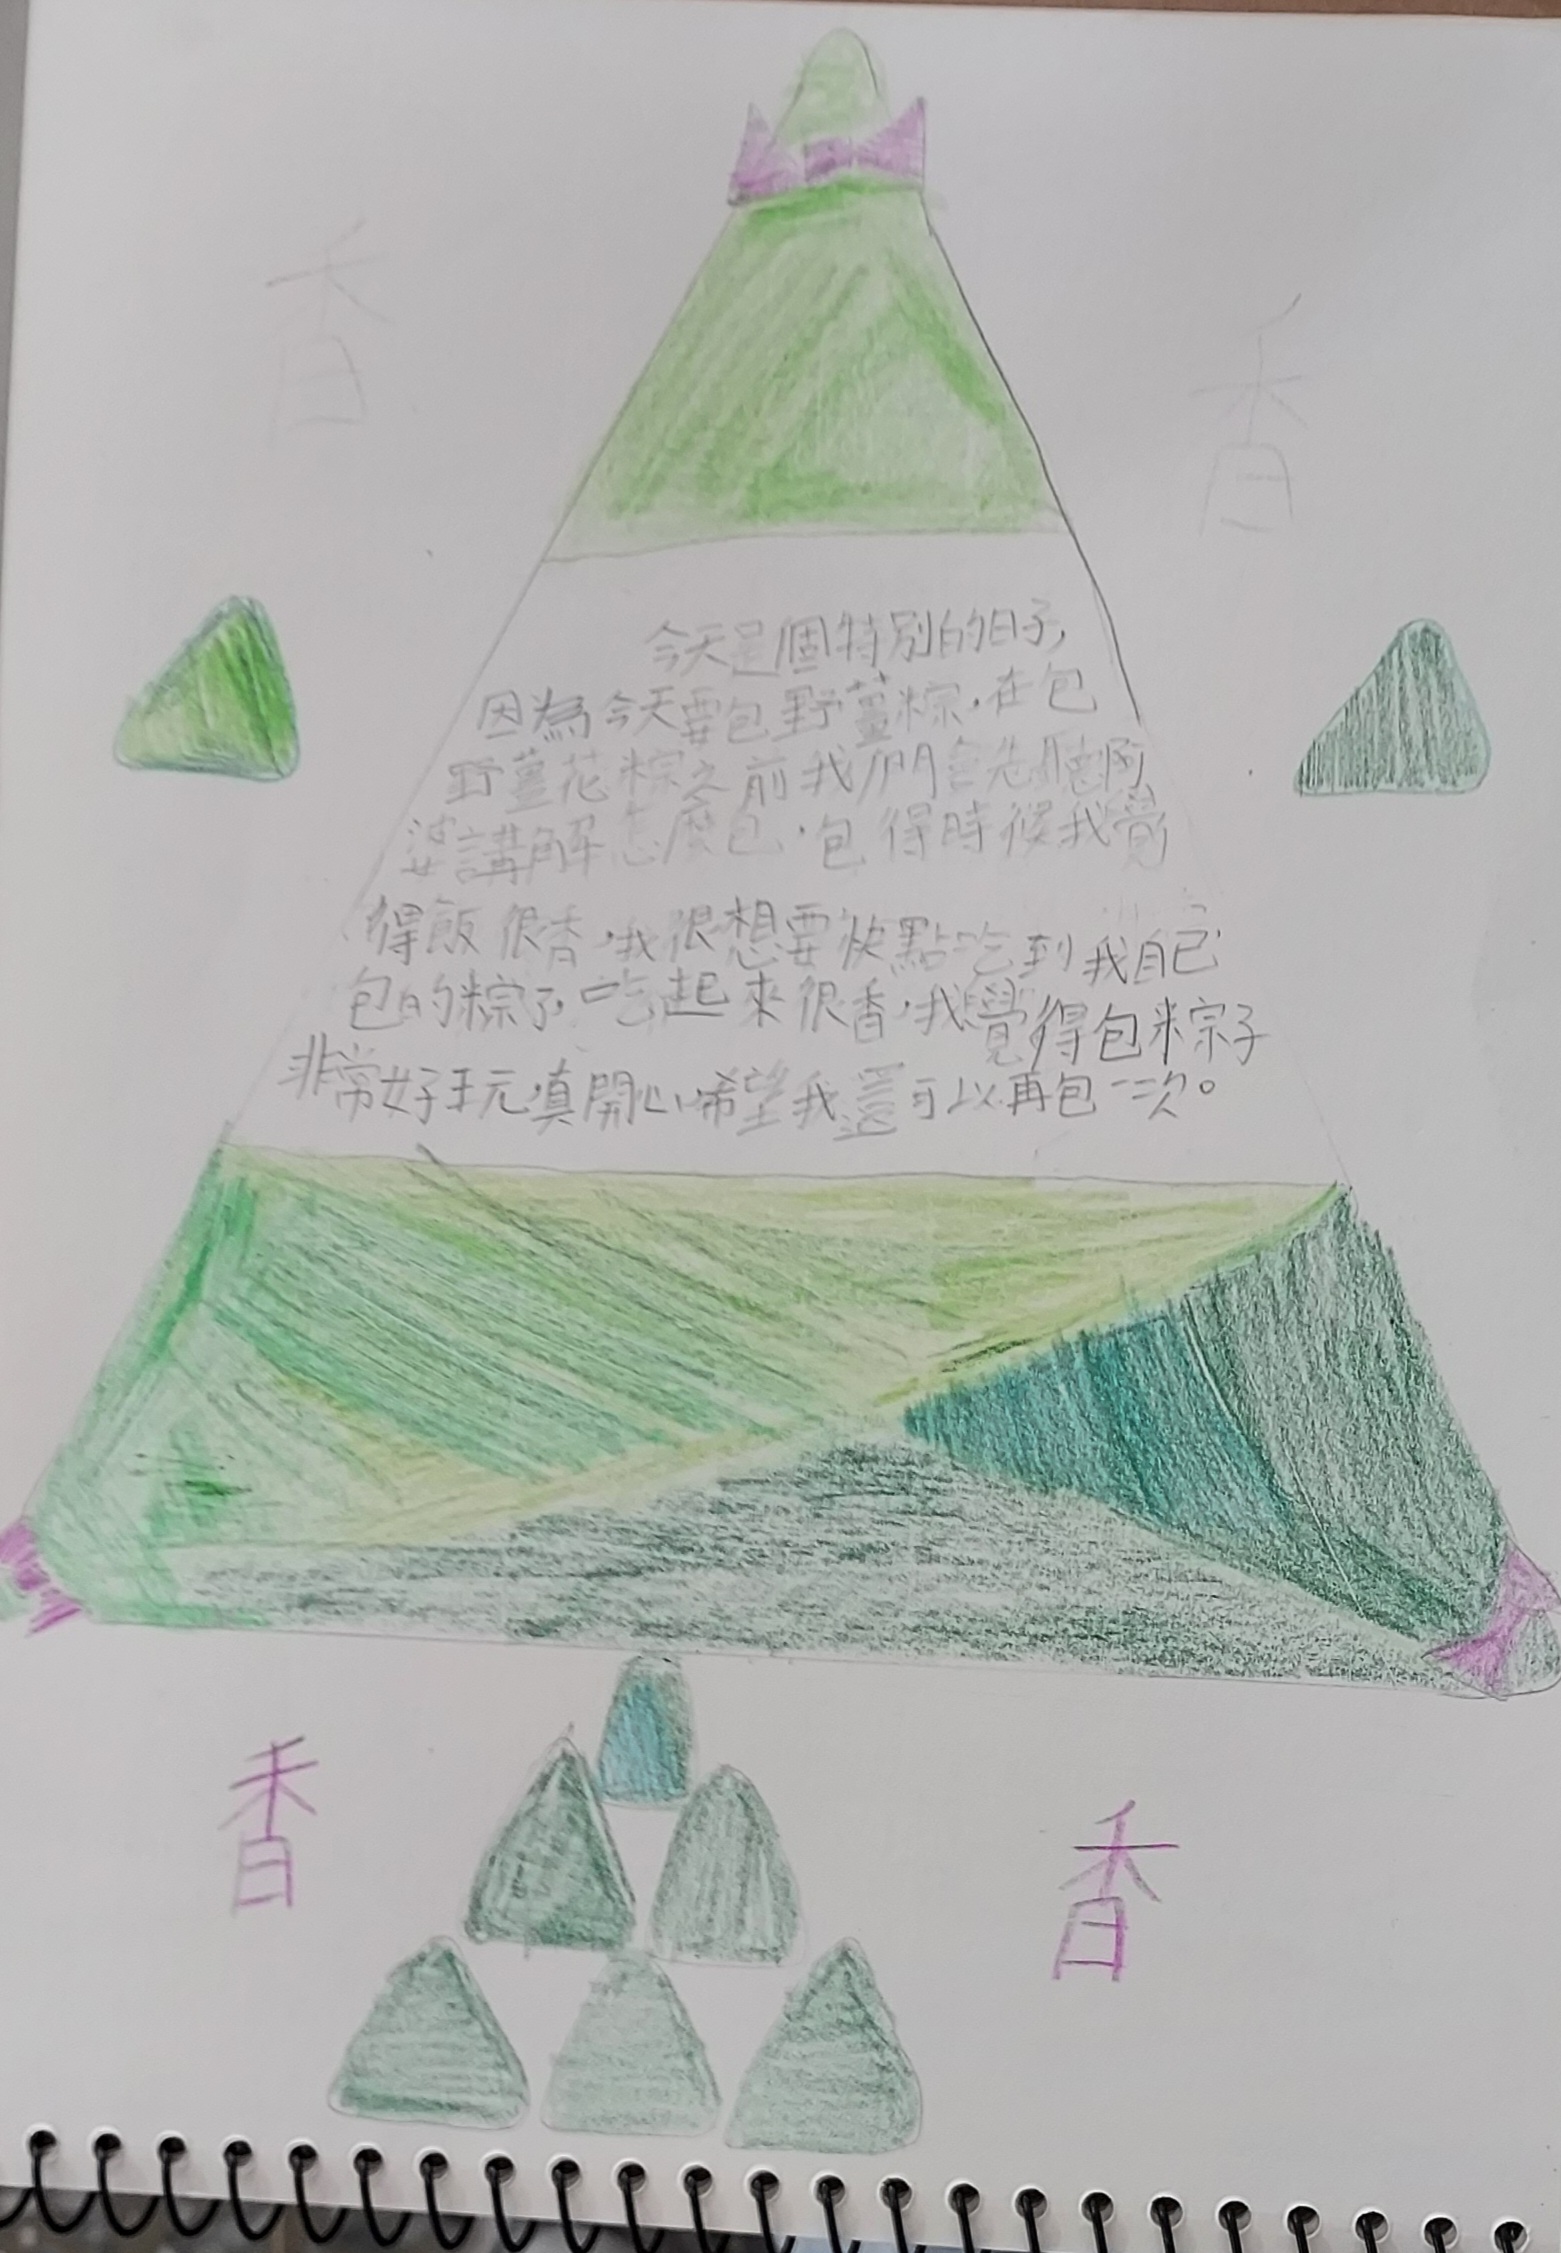 香
香
今天是個特別的日子,
因為今天要包野薑粽,在包
野薑花粽之前我們會先聽阿
婆講解怎麼包,包得時候我覺
得飯很香,我很想要快點吃到我自己
包的粽子,吃起來很香,我覺得包粽子
非常好玩,真開心,希望我還可以再包一次。
香
香